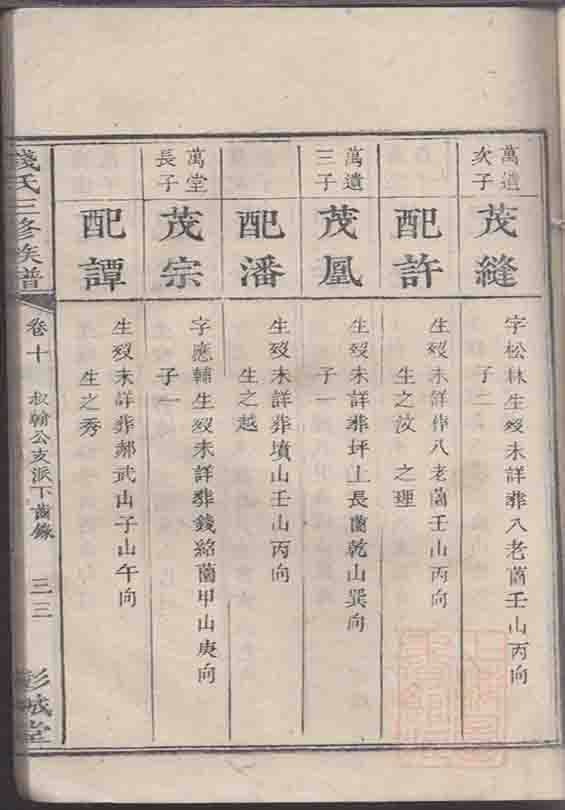 萬遺次子
茂縫
字松林生歿未詳葬八老薗壬山丙向
子二
配許
生歿未詳葬八老薗壬山丙向
生之汶 之理
萬遺三子
茂凰
生歿未詳葬坪上長薗乾山巽向
子一
配潘
生歿未詳葬墳山壬山丙向
生之越
萬堂長子
茂宗
字應輔生歿未詳葬錢紹薗甲山庚向
子一
配譚
生歿未詳葬郝武山子山午向
生之秀
錢氏三修族譜
卷十
叔翰公支派下齒錄
三三
彭城堂